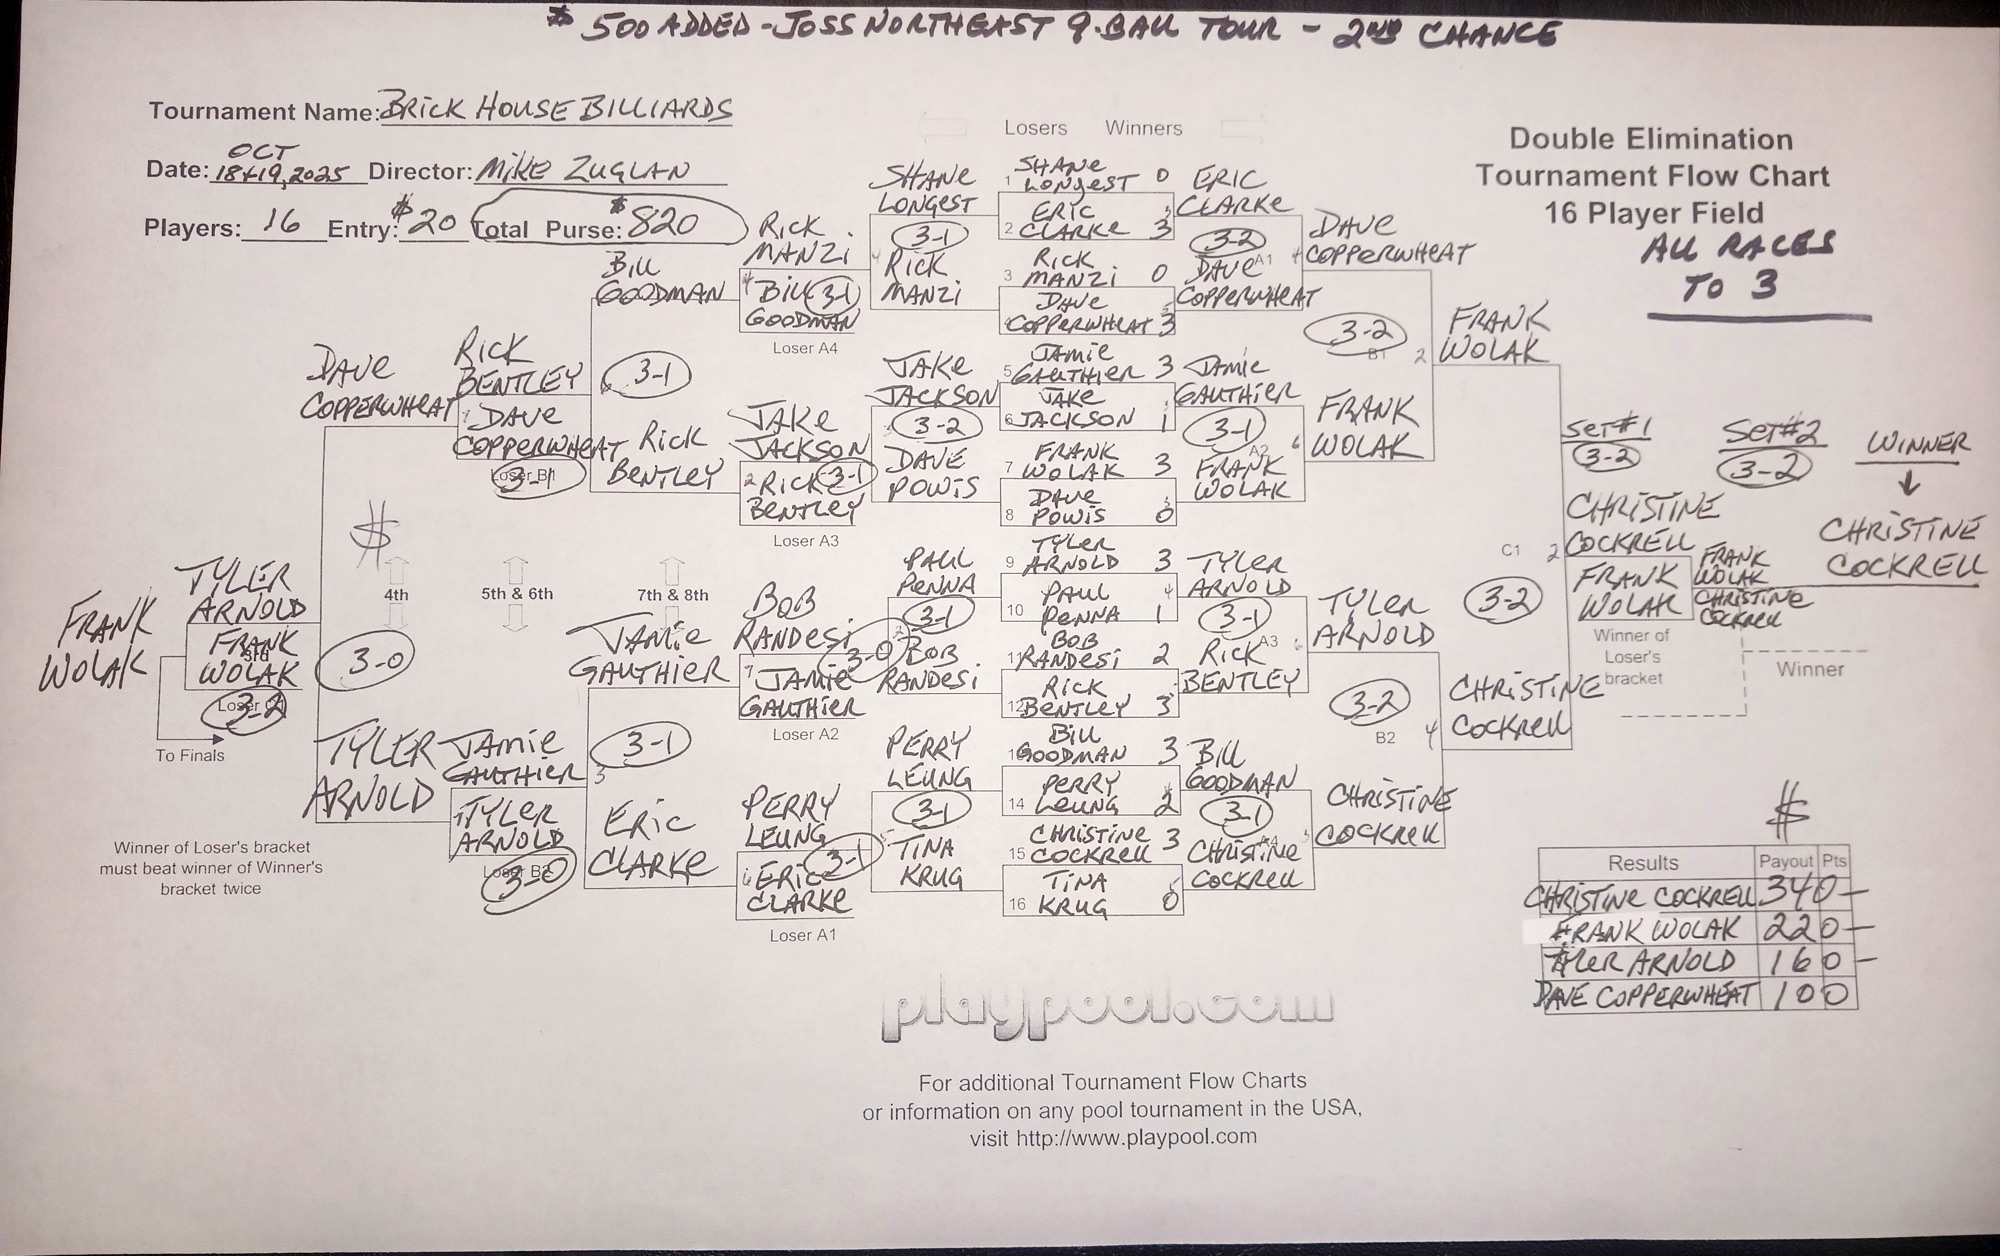 $500 ADDED - JOSS NORTHEAST 9-BALL TOUR - 2ND CHANCE
Tournament Name: BRICK HOUSE BILLIARDS
Date: OCT 18+19, 2025 Director: MIKE ZUGLAN
Players: 16 Entry: $20 Total Purse: $820
Double Elimination
Tournament Flow Chart
16 Player Field
ALL RACES
TO 3
Losers Winners
1 SHANE LONGEST 0
2 ERIC CLARKE 3
3 RICK MANZI 0
DAVE COPPERWHEAT 3
5 JAMIE GAUTHIER 3
6 JAKE JACKSON 1
7 FRANK WOLAK 3
8 DAVE POWIS 0
9 TYLER ARNOLD 3
10 PAUL PENNA 1
11 BOB RANDESI 2
12 RICK BENTLEY 3
BILL GOODMAN 3
14 PERRY LEUNG 2
15 CHRISTINE COCKRELL 3
16 TINA KRUG 0
ERIC CLARKE
3-2
A1
DAVE COPPERWHEAT
JAMIE GAUTHIER
3-1
A2
FRANK WOLAK
TYLER ARNOLD
3-1
A3
RICK BENTLEY
BILL GOODMAN
3-1
A4
CHRISTINE COCKRELL
DAVE COPPERWHEAT
3-2
B1
FRANK WOLAK
TYLER ARNOLD
3-2
B2
CHRISTINE COCKRELL
FRANK WOLAK
C1
3-2
CHRISTINE COCKRELL
SET #1
3-2
SET #2
3-2
WINNER
CHRISTINE COCKRELL
CHRISTINE COCKRELL
FRANK WOLAK
FRANK WOLAK
CHRISTINE COCKRELL
Winner of
Loser's
bracket
Winner
SHANE LONGEST
3-1
RICK MANZI
JAKE JACKSON
3-2
DAVE POWIS
PAUL PENNA
3-1
BOB RANDESI
PERRY LEUNG
3-1
TINA KRUG
RICK MANZI
BILL GOODMAN
3-1
Loser A4
JAKE JACKSON
RICK BENTLEY
3-1
Loser A3
BOB RANDESI
3-0
JAMIE GAUTHIER
Loser A2
PERRY LEUNG
3-1
ERIC CLARKE
Loser A1
BILL GOODMAN
3-1
RICK BENTLEY
7th & 8th
JAMIE GAUTHIER
3-1
ERIC CLARKE
RICK BENTLEY
DAVE COPPERWHEAT
Loser B1
3-1
5th & 6th
JAMIE GAUTHIER
TYLER ARNOLD
Loser B2
3-0
DAVE COPPERWHEAT
$
4th
3-0
TYLER ARNOLD
TYLER ARNOLD
FRANK WOLAK
3rd
3-2
FRANK WOLAK
To Finals
Winner of Loser's bracket
must beat winner of Winner's
bracket twice
$
Results Payout Pts
CHRISTINE COCKRELL 340-
FRANK WOLAK 220-
TYLER ARNOLD 160-
DAVE COPPERWHEAT 100
playpool.com
For additional Tournament Flow Charts
or information on any pool tournament in the USA,
visit http://www.playpool.com